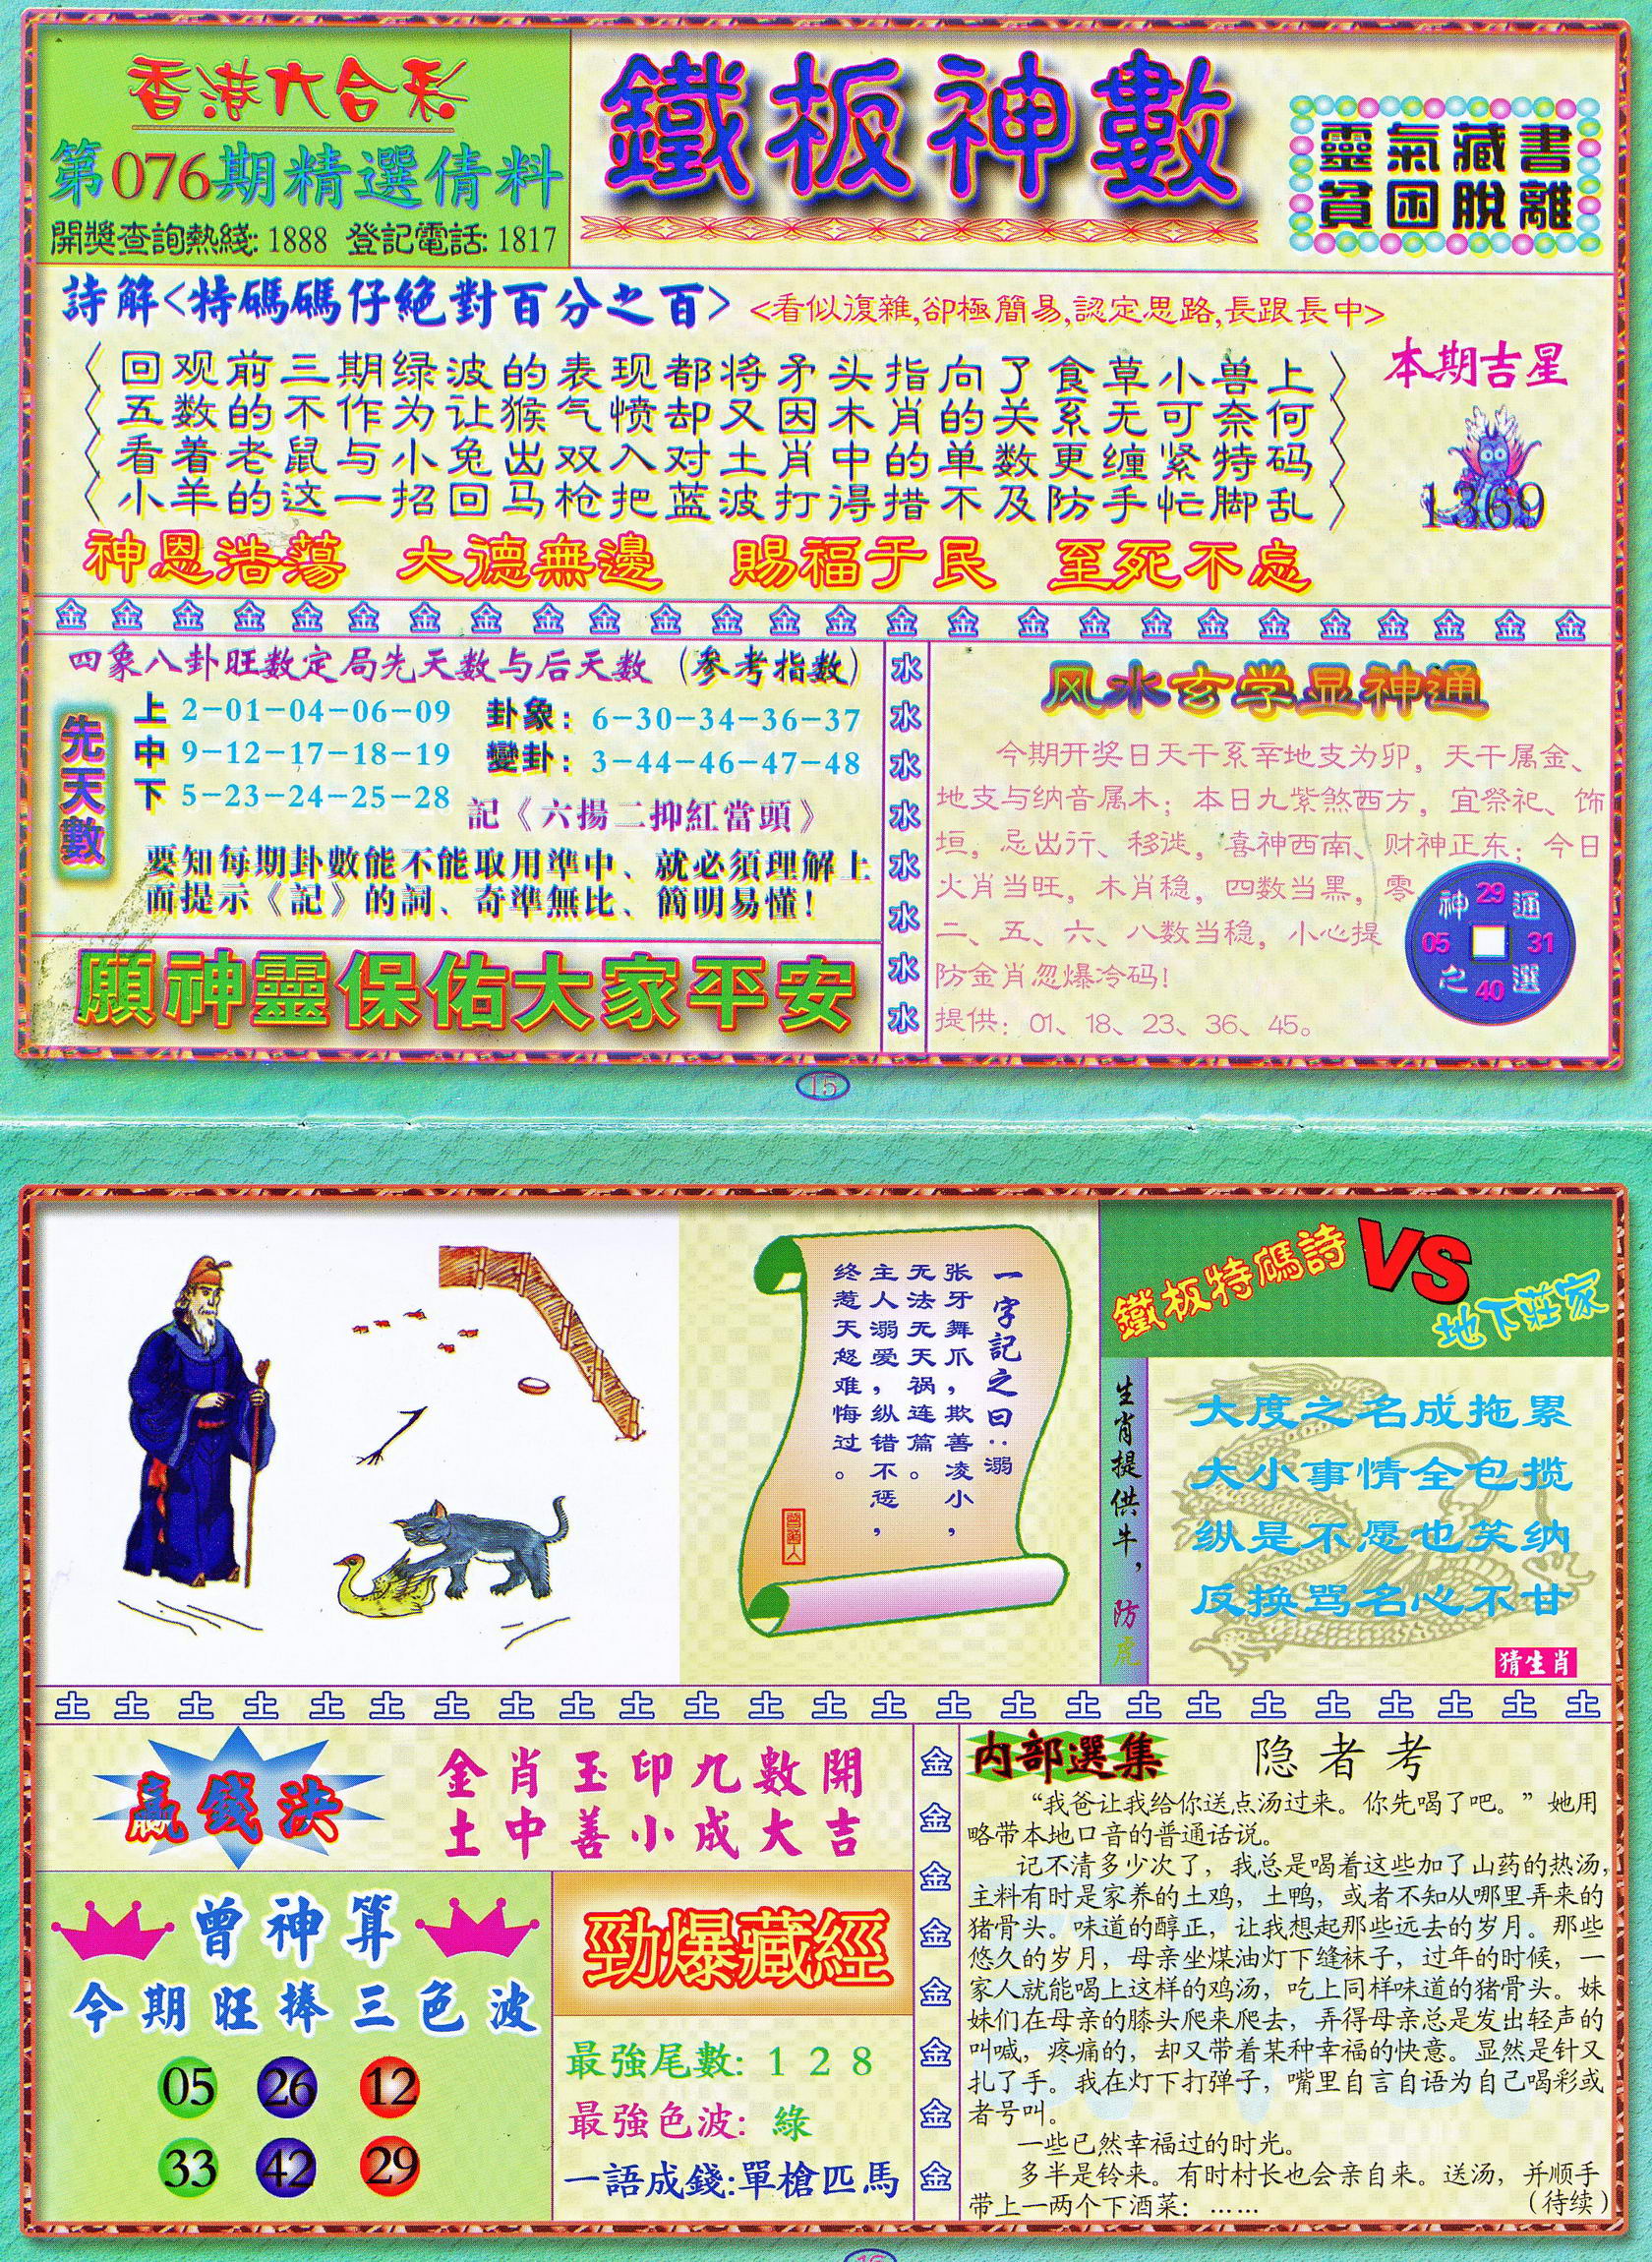 香港六合彩
第076期精選倩料
開獎查詢熱綫: 1888 登記電話: 1817
鐵板神數
靈氣藏書
貧困脫離
詩解<特碼碼仔絕對百分之百>
<看似復雜,卻極簡易,認定思路,長跟長中>
回观前三期绿波的表现都将矛头指向了食草小兽上
五数的不作为让猴气愤却又因木肖的关系无可奈何
看着老鼠与小兔出双入对土肖中的单数更缠紧特码
小羊的这一招回马枪把蓝波打得措不及防手忙脚乱
本期吉星
1369
神恩浩蕩 大德無邊 賜福于民 至死不忘
金金金金金金金金金金金金金金金金金金金金金金金金金金
四象八卦旺数定局先天数与后天数（参考指数）
先天數
上 2-01-04-06-09
中 9-12-17-18-19
下 5-23-24-25-28
卦象： 6-30-34-36-37
變卦： 3-44-46-47-48
記《六揚二抑紅當頭》
要知每期卦數能不能取用準中、就必須理解上
而提示《記》的詞、奇準無比、簡明易懂！
願神靈保佑大家平安
水
水
水
水
水
水
水
水
风水玄学显神通
今期开奖日天干系辛地支为卯，天干属金、
地支与纳音属木；本日九紫煞西方，宜祭祀、饰
垣，忌出行、移徙，喜神西南、财神正东；今日
火肖当旺，木肖稳，四数当黑，零
二、五、六、八数当稳，小心提
防金肖忽爆冷码！
提供：01、18、23、36、45。
神 29 通
05 31
之 40 選
15
一字記之曰：溺
张牙舞爪，欺善凌小，
无法无天祸连篇。
主人溺爱，纵错不惩，
终惹天怒难悔过。
鐵板特碼詩
VS
地下莊家
生肖提供牛，防虎
大度之名成拖累
大小事情全包揽
纵是不愿也笑纳
反换骂名心不甘
猜生肖
土土土土土土土土土土土土土土土土土土土土土土土土土
贏錢決
金肖玉印九數開
土中善小成大吉
曾神算
今期旺捧三色波
05 26 12
33 42 29
勁爆藏經
最強尾數: 1 2 8
最強色波: 綠
一語成錢:單槍匹馬
金
金
金
金
金
金
金
金
内部選集
隐者考
“我爸让我给你送点汤过来。你先喝了吧。”她用
略带本地口音的普通话说。
记不清多少次了，我总是喝着这些加了山药的热汤，
主料有时是家养的土鸡，土鸭，或者不知从哪里弄来的
猪骨头。味道的醇正，让我想起那些远去的岁月。那些
悠久的岁月，母亲坐煤油灯下缝袜子，过年的时候，一
家人就能喝上这样的鸡汤，吃上同样味道的猪骨头。妹
妹们在母亲的膝头爬来爬去，弄得母亲总是发出轻声的
叫喊，疼痛的，却又带着某种幸福的快意。显然是针又
扎了手。我在灯下打弹子，嘴里自言自语为自己喝彩或
者号叫。
一些已然幸福过的时光。
多半是铃来。有时村长也会亲自来。送汤，并顺手
带上一两个下酒菜：……
（待续）